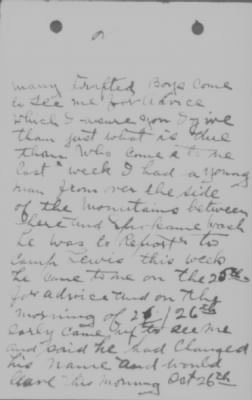 many Drafted Boys Come
to see me for advice
which I assure you I give
them just what is due
them who Come to me
last week I had a young
man from over the side
of the Mountains between
here and Spokane Wash
he was to Report to
Camp Lewis this week
he came to me on the 25th
for advice and on the
morning of 25/26th
early came up to see me
and said he had Changed
his Name and would
leave this morning Oct 26th